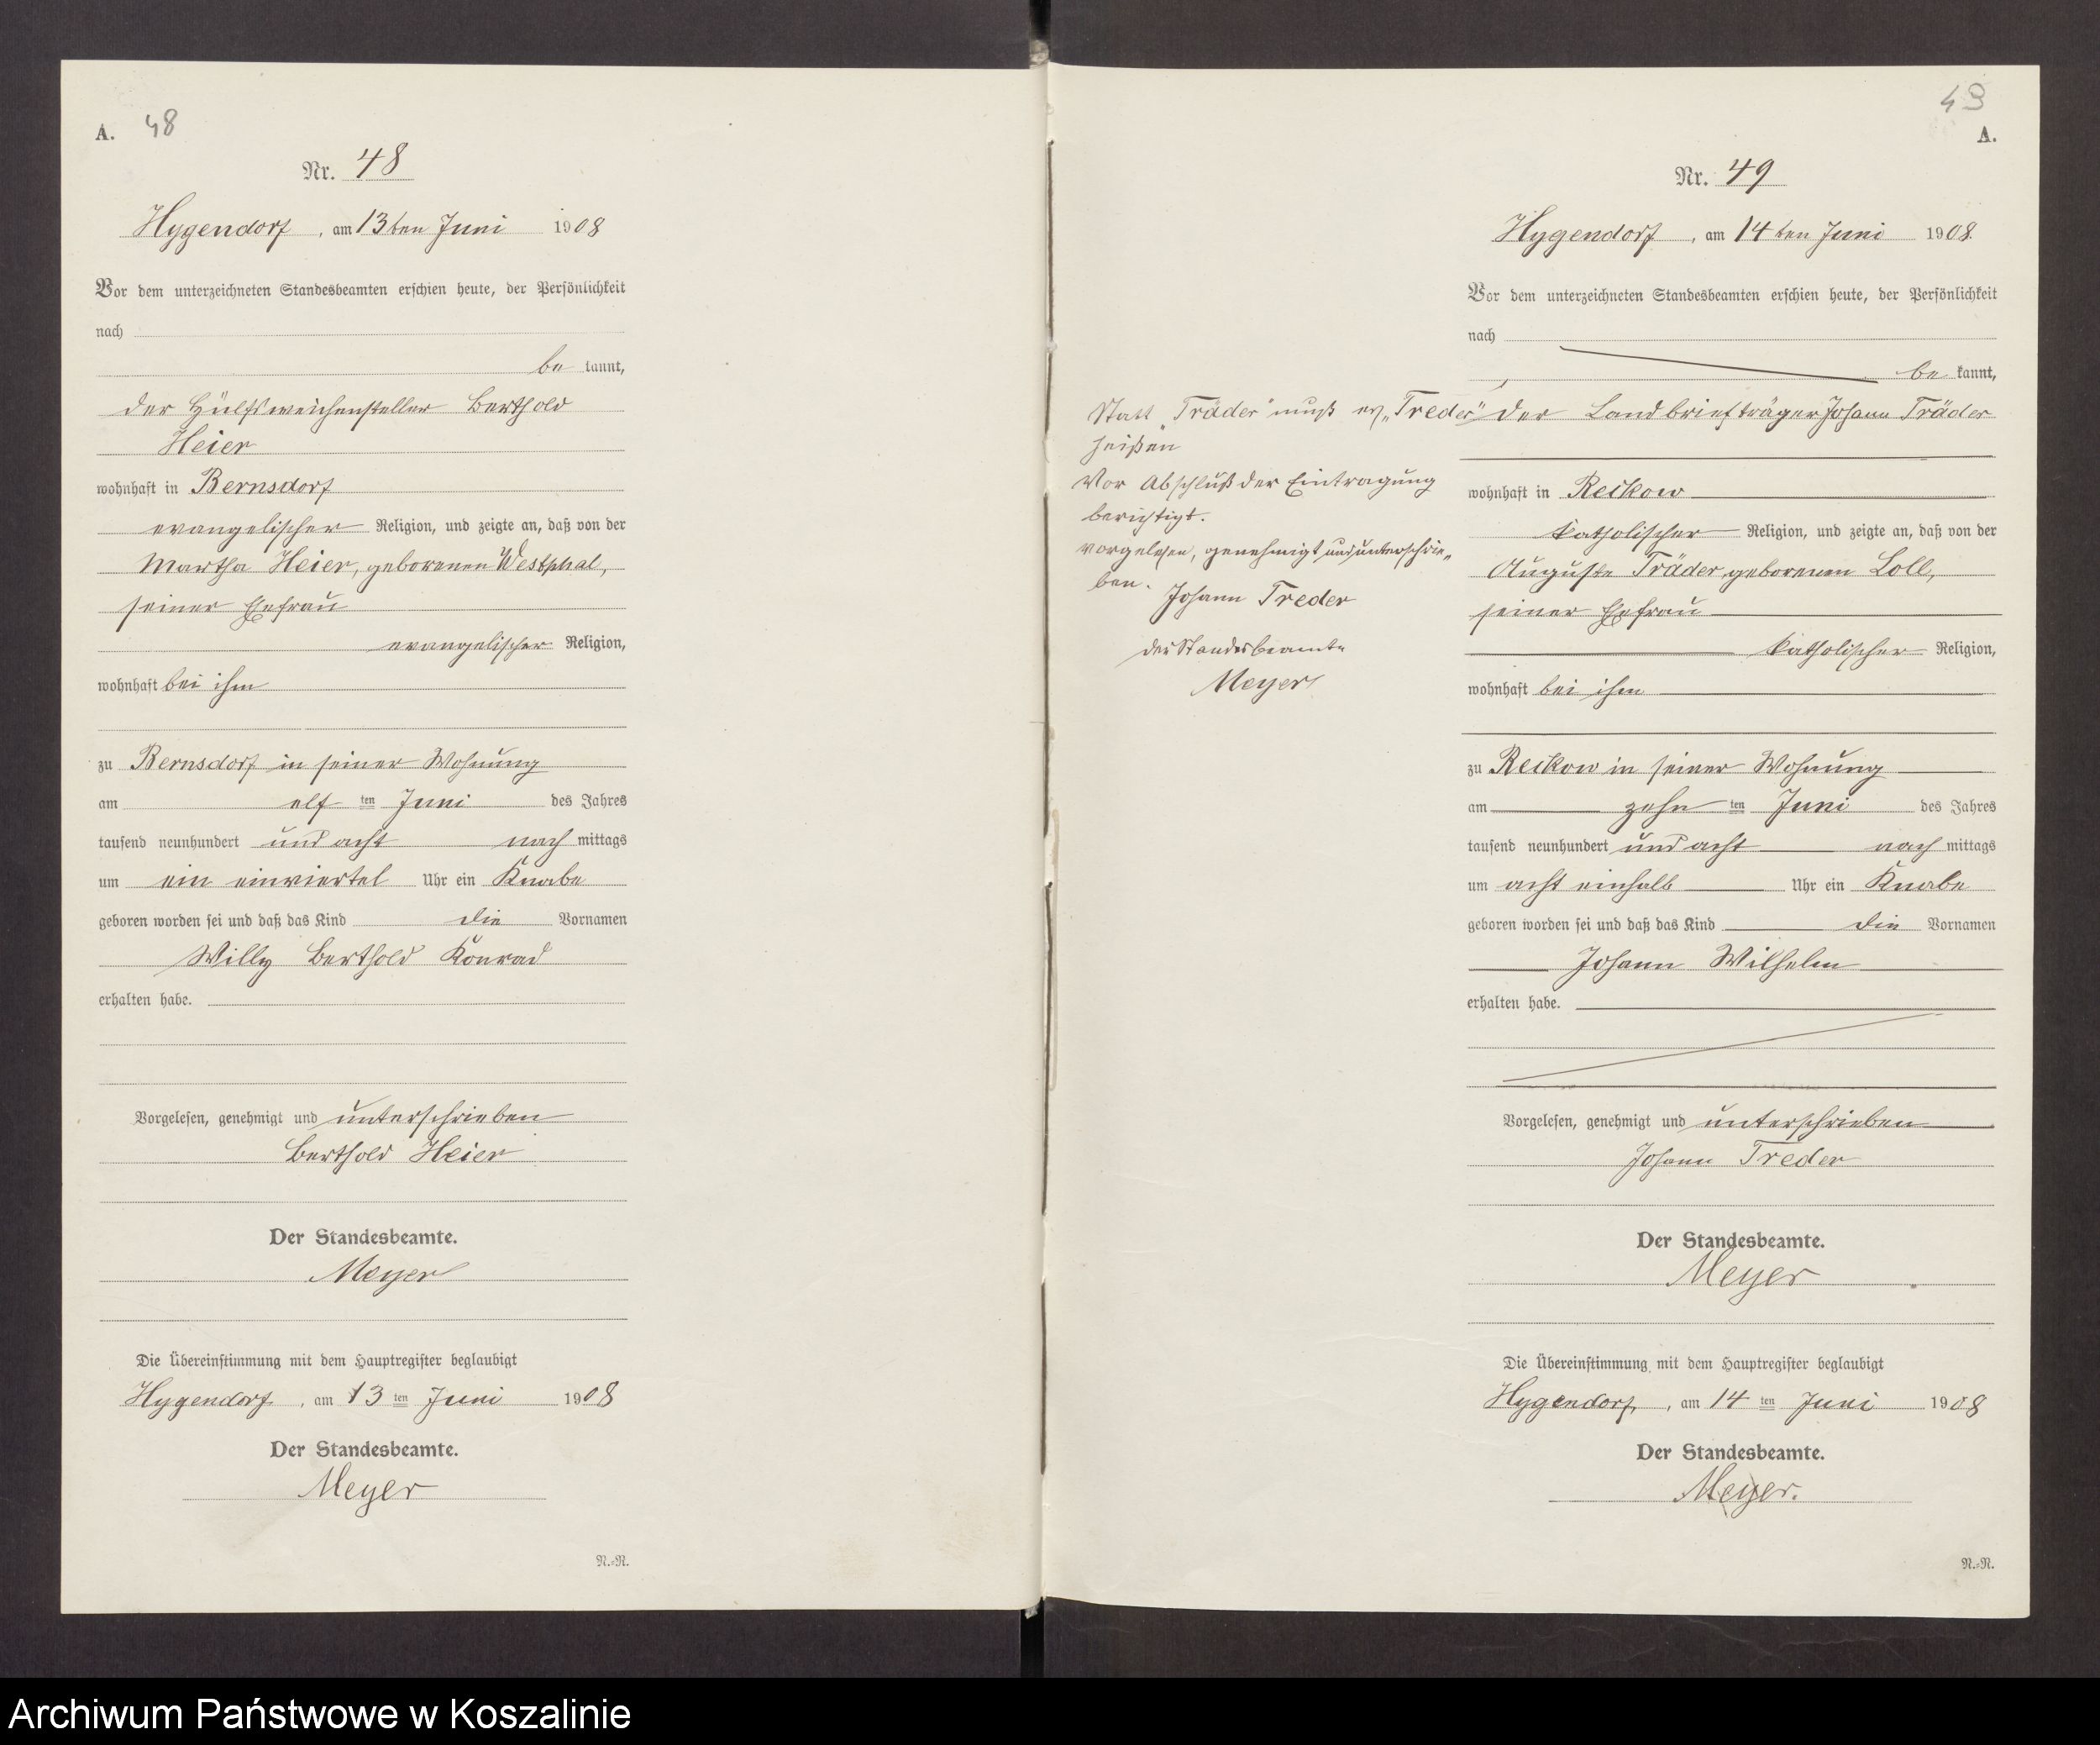 A. 48
Nr. 48
Hygendorf, am 13ten Juni 1908
Vor dem unterzeichneten Standesbeamten erschien heute, der Persönlichkeit
nach
be kannt,
der Hülfsweichensteller Berthold
Heier
wohnhaft in Bernsdorf
evangelischer Religion, und zeigte an, daß von der
Martha Heier, geborenen Westphal,
seiner Ehefrau
evangelischer Religion,
wohnhaft bei ihm
zu Bernsdorf in seiner Wohnung
am elf ten Juni des Jahres
tausend neunhundert und acht nach mittags
um ein einviertel Uhr ein Knabe
geboren worden sei und daß das Kind die Vornamen
Willy Berthold Konrad
erhalten habe.
Vorgelesen, genehmigt und unterschrieben
Berthold Heier
Der Standesbeamte.
Meyer
Die Übereinstimmung mit dem Hauptregister beglaubigt
Hygendorf, am 13 ten Juni 1908
Der Standesbeamte.
Meyer
N.=N.
49
A.
Nr. 49
Hygendorf, am 14ten Juni 1908.
Vor dem unterzeichneten Standesbeamten erschien heute, der Persönlichkeit
nach
be kannt,
der Landbriefträger Johann Träder
wohnhaft in Reckow
katholischer Religion, und zeigte an, daß von der
Auguste Träder, geborenen Loll,
seiner Ehefrau
katholischer Religion,
wohnhaft bei ihm
zu Reckow in seiner Wohnung
am zehn ten Juni des Jahres
tausend neunhundert und acht nach mittags
um acht einhalb Uhr ein Knabe
geboren worden sei und daß das Kind die Vornamen
Johann Wilhelm
erhalten habe.
Vorgelesen, genehmigt und unterschrieben
Johann Treder
Der Standesbeamte.
Meyer
Die Übereinstimmung mit dem Hauptregister beglaubigt
Hygendorf, am 14 ten Juni 1908
Der Standesbeamte.
Meyer.
N.=N.
Statt "Träder" muß es "Treder"
heißen
Vor Abschluß der Eintragung
berichtigt.
vorgelesen, genehmigt und unterschrie-
ben.
Johann Treder
der Standesbeamte
Meyer
Archiwum Państwowe w Koszalinie